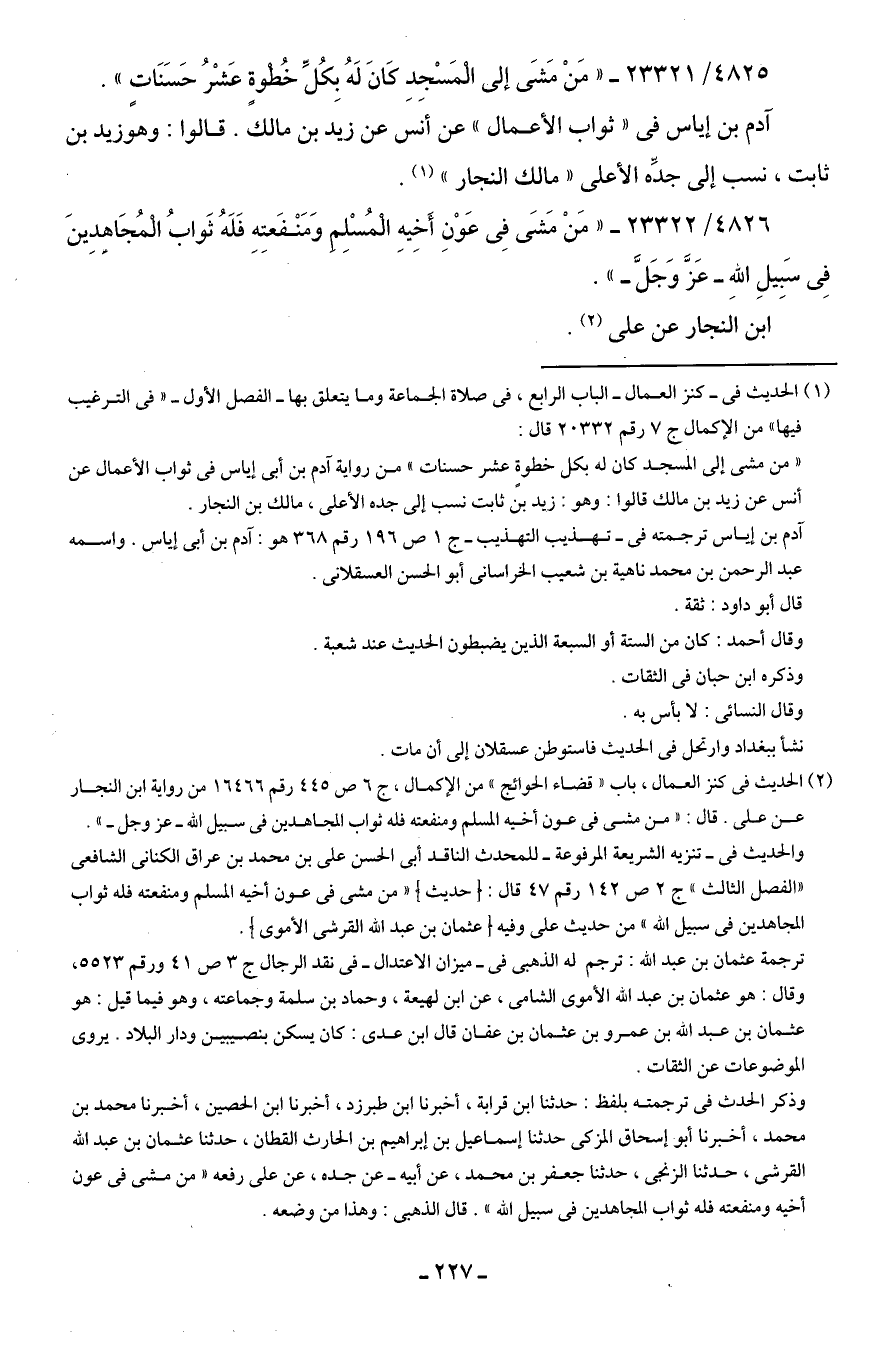 ٤٨٢٥/ ٢٣٣٢١ ـ « مَنْ مَشَى إلى الْمَسْجِدِ كَانَ لَهُ بِكُلِّ خُطْوةٍ عَشْرُ حَسَنَاتٍ » .
آدم بن إياس فى « ثواب الأعـمال » عن أنس عن زيد بن مالك . قـالوا : وهوزيد بن
ثابت ، نسب إلى جدِّه الأعلى « مالك النجار » (١) .
٤٨٢٦/ ٢٣٣٢٢ ـ « مَنْ مَشَى فِى عَوْنِ أَخِيهِ الْمُسْلِمِ وَمَنْـفَعتِهِ فَلَهُ ثَوابُ الْمُجَاهِدِينَ
فِى سَبِيلِ اللهِ ـ عَزَّ وَجَلَّ ـ » .
ابن النجار عن على (٢) .
(١) الحديث فى ـ كنز العـمال ـ الباب الرابع ، فى صلاة الجـماعة ومـا يتعلق بها ـ الفصل الأول ـ « فى التـرغيب
فيها» من الإكمال ج ٧ رقم ٢٠٣٣٢ قال :
« من مشى إلى المسجـد كان له بكل خطوةٍ عشر حسنات » مـن رواية آدم بن أبى إياس فى ثواب الأعمال عن
أنس عن زيد بن مالك قالوا : وهو : زيد بن ثابت نسب إلى جده الأعلى ، مالك بن النجار .
آدم بن إيـاس ترجـمته فى ـ تـهـذيب التهـذيب ـ ج ١ ص ١٩٦ رقم ٣٦٨ هو : آدم بن أبى إياس . واسـمه
عبد الرحمن بن محمد ناهية بن شعيب الخراسانى أبو الحسن العسقلانى .
قال أبو داود : ثقة .
وقال أحمد : كان من الستة أو السبعة الذين يضبطون الحديث عند شعبة .
وذكره ابن حبان فى الثقات .
وقال النسائى : لا بأس به .
نشأ ببغداد وارتحل فى الحديث فاستوطن عسقلان إلى أن مات .
(٢) الحديث فى كنز العمال ، باب « قضـاء الحوائج » من الإكمـال ، ج ٦ ص ٤٤٥ رقم ١٦٤٦٦ من رواية ابن النجـار
عـن عـلى . قال : « مـن مشى فى عـون أخـيه المسلم ومنفعته فله ثواب المجـاهـدين فى سـبيل الله ـ عز وجل ـ » .
والحديث فى ـ تنزيه الشريعة المرفوعة ـ للمحدث الناقـد أبى الحسن على بن محمد بن عراق الكنانى الشافعى
«الفصل الثالث » ج ٢ ص ١٤٢ رقم ٤٧ قال : { حديث } « من مشى فى عـون أخيه المسلم ومنفعته فله ثواب
المجاهدين فى سبيل الله » من حديث على وفيه { عثمان بن عبد الله القرشى الأموى } .
ترجمة عثمان بن عبد الله : ترجم له الذهبى فى ـ ميزان الاعتدال ـ فى نقد الرجال ج ٣ ص ٤١ ورقم ٥٥٢٣،
وقال : هو عثمان بن عبد الله الأموى الشامى ، عن ابن لهيعة ، وحماد بن سلمة وجماعته ، وهو فيما قيل : هو
عثـمان بن عـبد الله بن عمـرو بن عثـمان بن عفـان قال ابن عـدى : كان يسكن بنصـيبيـن ودار البلاد . يروى
الموضوعات عن الثقات .
وذكر الحدث فى ترجمتـه بلفظ : حدثنا ابن قرابة ، أخبرنا ابن طبرزد ، أخبرنا ابن الحصين ، أخـبرنا محمد بن
محمد ، أخـبرنا أبو إسحاق المزكى حدثنا إسمـاعيل بن إبراهيم بن الحارث القطان ، حدثنا عثـمان بن عبد الله
القرشى ، حـدثنا الزنجى ، حدثنا جعفـر بن محـمد ، عن أبيه ـ عن جده ، عن على رفعه « من مـشى فى عون
أخيه ومنفعته فله ثواب المجاهدين فى سبيل الله » . قال الذهبى : وهذا من وضعه .
ـ ٢٢٧ ـ